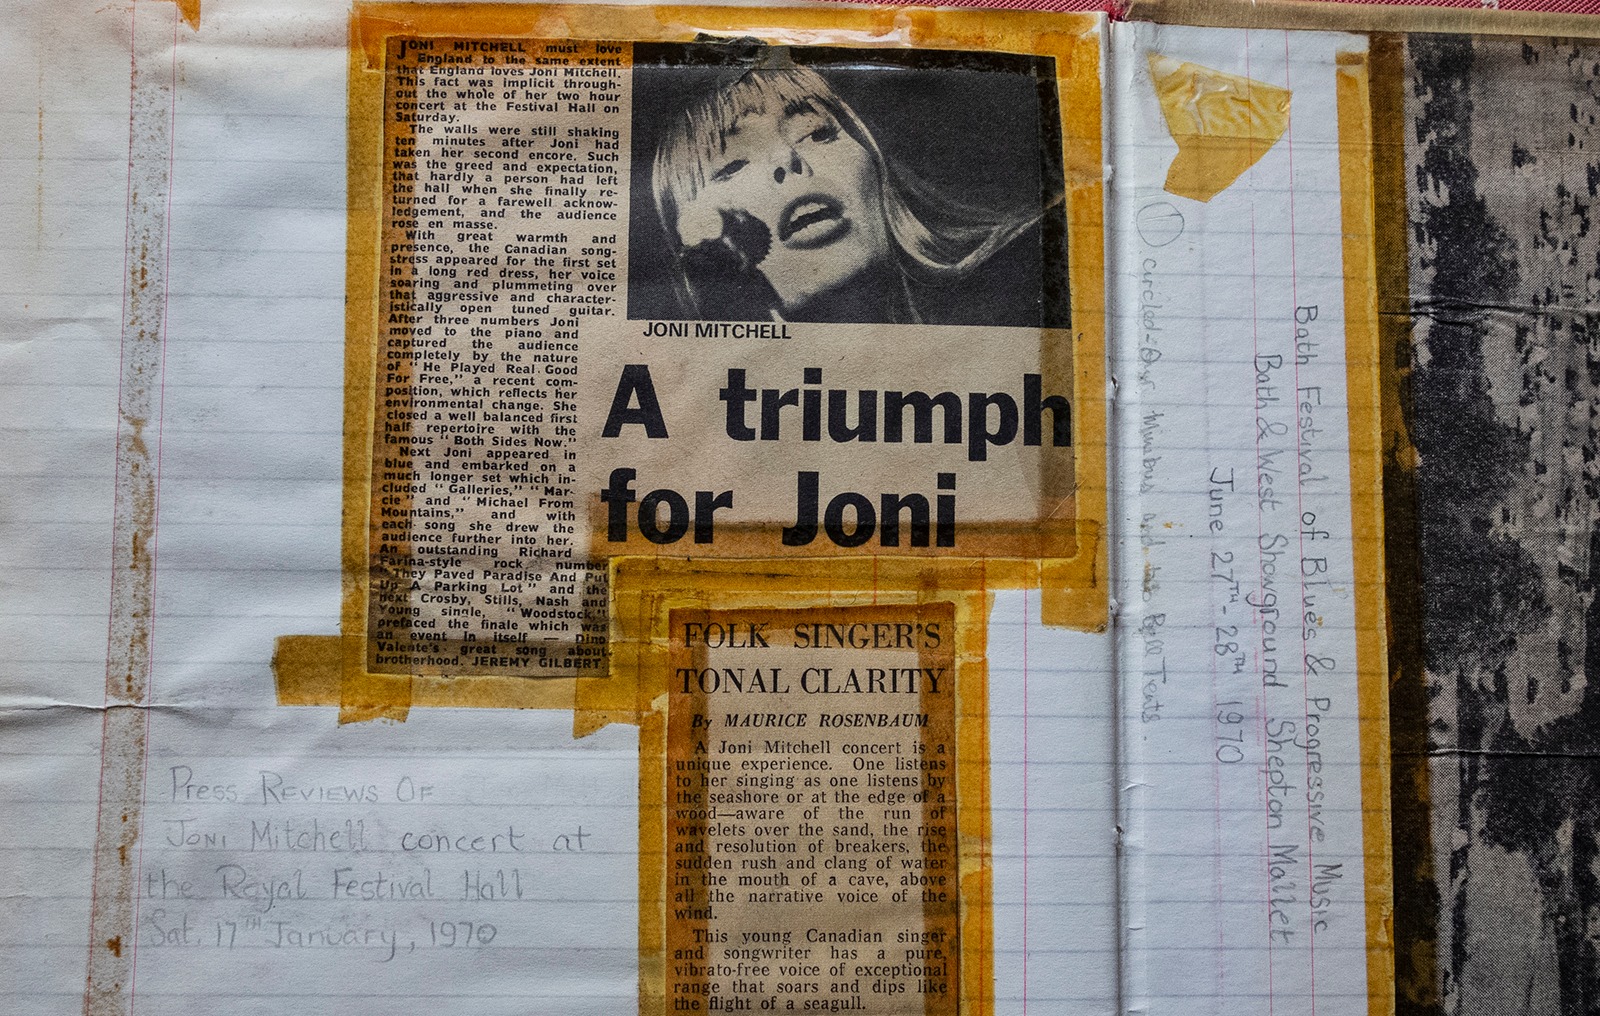 JONI MITCHELL must love
England to the same extent
that England loves Joni Mitchell.
This fact was implicit through-
out the whole of her two hour
concert at the Festival Hall on
Saturday.
The walls were still shaking
ten minutes after Joni had
taken her second encore. Such
was the greed and expectation,
that hardly a person had left
the hall when she finally re-
turned for a farewell acknow-
ledgement, and the audience
rose en masse.
With great warmth and
presence, the Canadian song-
stress appeared for the first set
in a long red dress, her voice
soaring and plummeting over
that aggressive and character-
istically open tuned guitar.
After three numbers Joni
moved to the piano and
captured the audience
completely by the nature
of "He Played Real Good
For Free," a recent com-
position, which reflects her
environmental change. She
closed a well balanced first
half repertoire with the
famous "Both Sides Now."
Next Joni appeared in
blue and embarked on a
much longer set which in-
cluded "Galleries," "Mar-
cie" and "Michael From
Mountains," and with
each song she drew the
audience further into her.
An outstanding Richard
Farina-style rock number
"They Paved Paradise And Put
Up A Parking Lot" and the
next Crosby, Stills, Nash and
Young single, "Woodstock,"
prefaced the finale which was
an event in itself — Dino
Valente's great song about
brotherhood. JEREMY GILBERT.
JONI MITCHELL
A triumph
for Joni
FOLK SINGER'S
TONAL CLARITY
By MAURICE ROSENBAUM
A Joni Mitchell concert is a
unique experience. One listens
to her singing as one listens by
the seashore or at the edge of a
wood—aware of the run of
wavelets over the sand, the rise
and resolution of breakers, the
sudden rush and clang of water
in the mouth of a cave, above
all the narrative voice of the
wind.
This young Canadian singer
and songwriter has a pure,
vibrato-free voice of exceptional
range that soars and dips like
the flight of a seagull.
Press Reviews Of
Joni Mitchell concert at
the Royal Festival Hall
Sat. 17TH January, 1970
Bath Festival of Blues & Progressive Music
Bath & West Showground Shepton Mallet
June 27TH - 28TH 1970
circled - Our Minibus and Bell Tents.